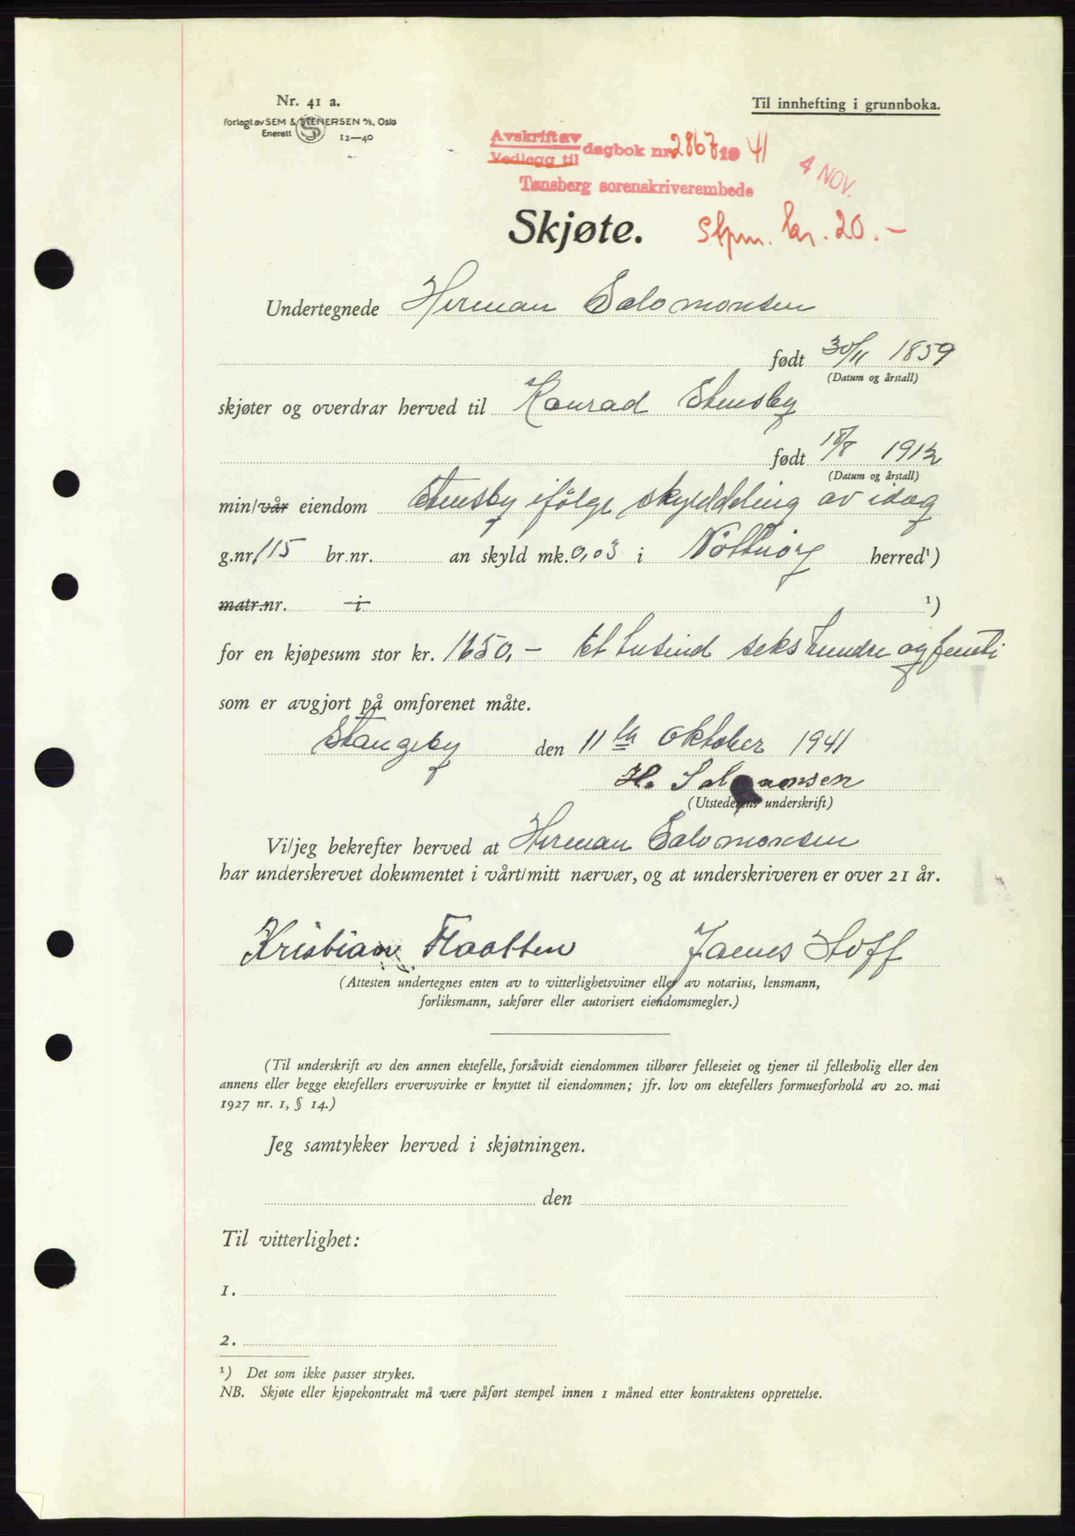 Nr. 41 a.
Forlagt av SEM & STENERSEN A/S, Oslo
Enerett S 12—40
Til innhefting i grunnboka.
Avskrift av
Vedlegg til
dagbok nr. 2867 19 41
4 NOV.
Tønsberg sorenskriverembede
Skjøte.
Stpm. kr. 20.-
Undertegnede Herman Salomonsen
født 30/11 1859
(Datum og årstall)
skjøter og overdrar herved til Konrad Stensby
født 18/8 1912
(Datum og årstall)
min/vår eiendom Stensby ifølge skylddeling av idag
g.nr. 115 br.nr. an skyld mk. 0,03 i Nøtterøy herred¹)
matr.nr. i ¹)
for en kjøpesum stor kr. 1650,- Et tusind sekshundre og femti
som er avgjort på omforenet måte.
Stangeby den 11te Oktober 1941
H. Salomonsen
(Utstederens underskrift)
Vi/jeg bekrefter herved at Herman Salomonsen
har underskrevet dokumentet i vårt/mitt nærvær, og at underskriveren er over 21 år.
Kristian Flaatten James Hoff
(Attesten undertegnes enten av to vitterlighetsvitner eller av notarius, lensmann,
forliksmann, sakfører eller autorisert eiendomsmegler.)
(Til underskrift av den annen ektefelle, forsåvidt eiendommen tilhører felleseiet og tjener til fellesbolig eller den
annens eller begge ektefellers ervervsvirke er knyttet til eiendommen; jfr. lov om ektefellers formuesforhold av 20. mai
1927 nr. 1, § 14.)
Jeg samtykker herved i skjøtningen.
den
Til vitterlighet:
1.
2.
¹) Det som ikke passer strykes.
NB. Skjøte eller kjøpekontrakt må være påført stempel innen 1 måned etter kontraktens opprettelse.